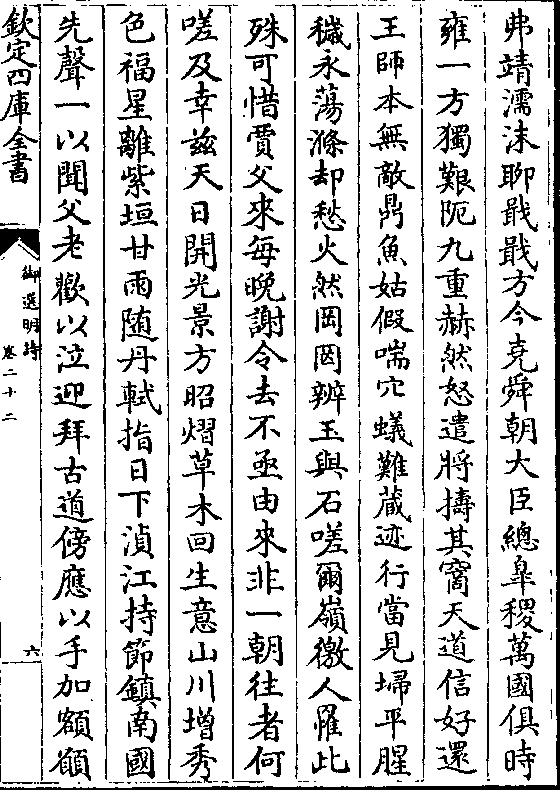 弗靖濡沫聊戢戢方今堯舜朝大臣總臯稷萬國俱時
雍一方獨艱阨九重赫然怒遣將擣其窩天道信好還
王師本無敵鼎魚姑假喘穴蟻難蔵迹行當見埽平腥
穢永蕩滌却愁火然岡罔辨玉與石嗟爾嶺徼人罹此
殊可惜賈父來每晚謝令去不亟由來非一朝往者何
嗟及幸兹天日開光景方昭熠草木回生意山川增秀
色福星離紫垣甘雨随丹軾指日下湞江持節鎮南國
先聲一以聞父老歡以泣迎拜古道傍應以手加額願
欽定四庫全書
御選明詩
卷二十二
六